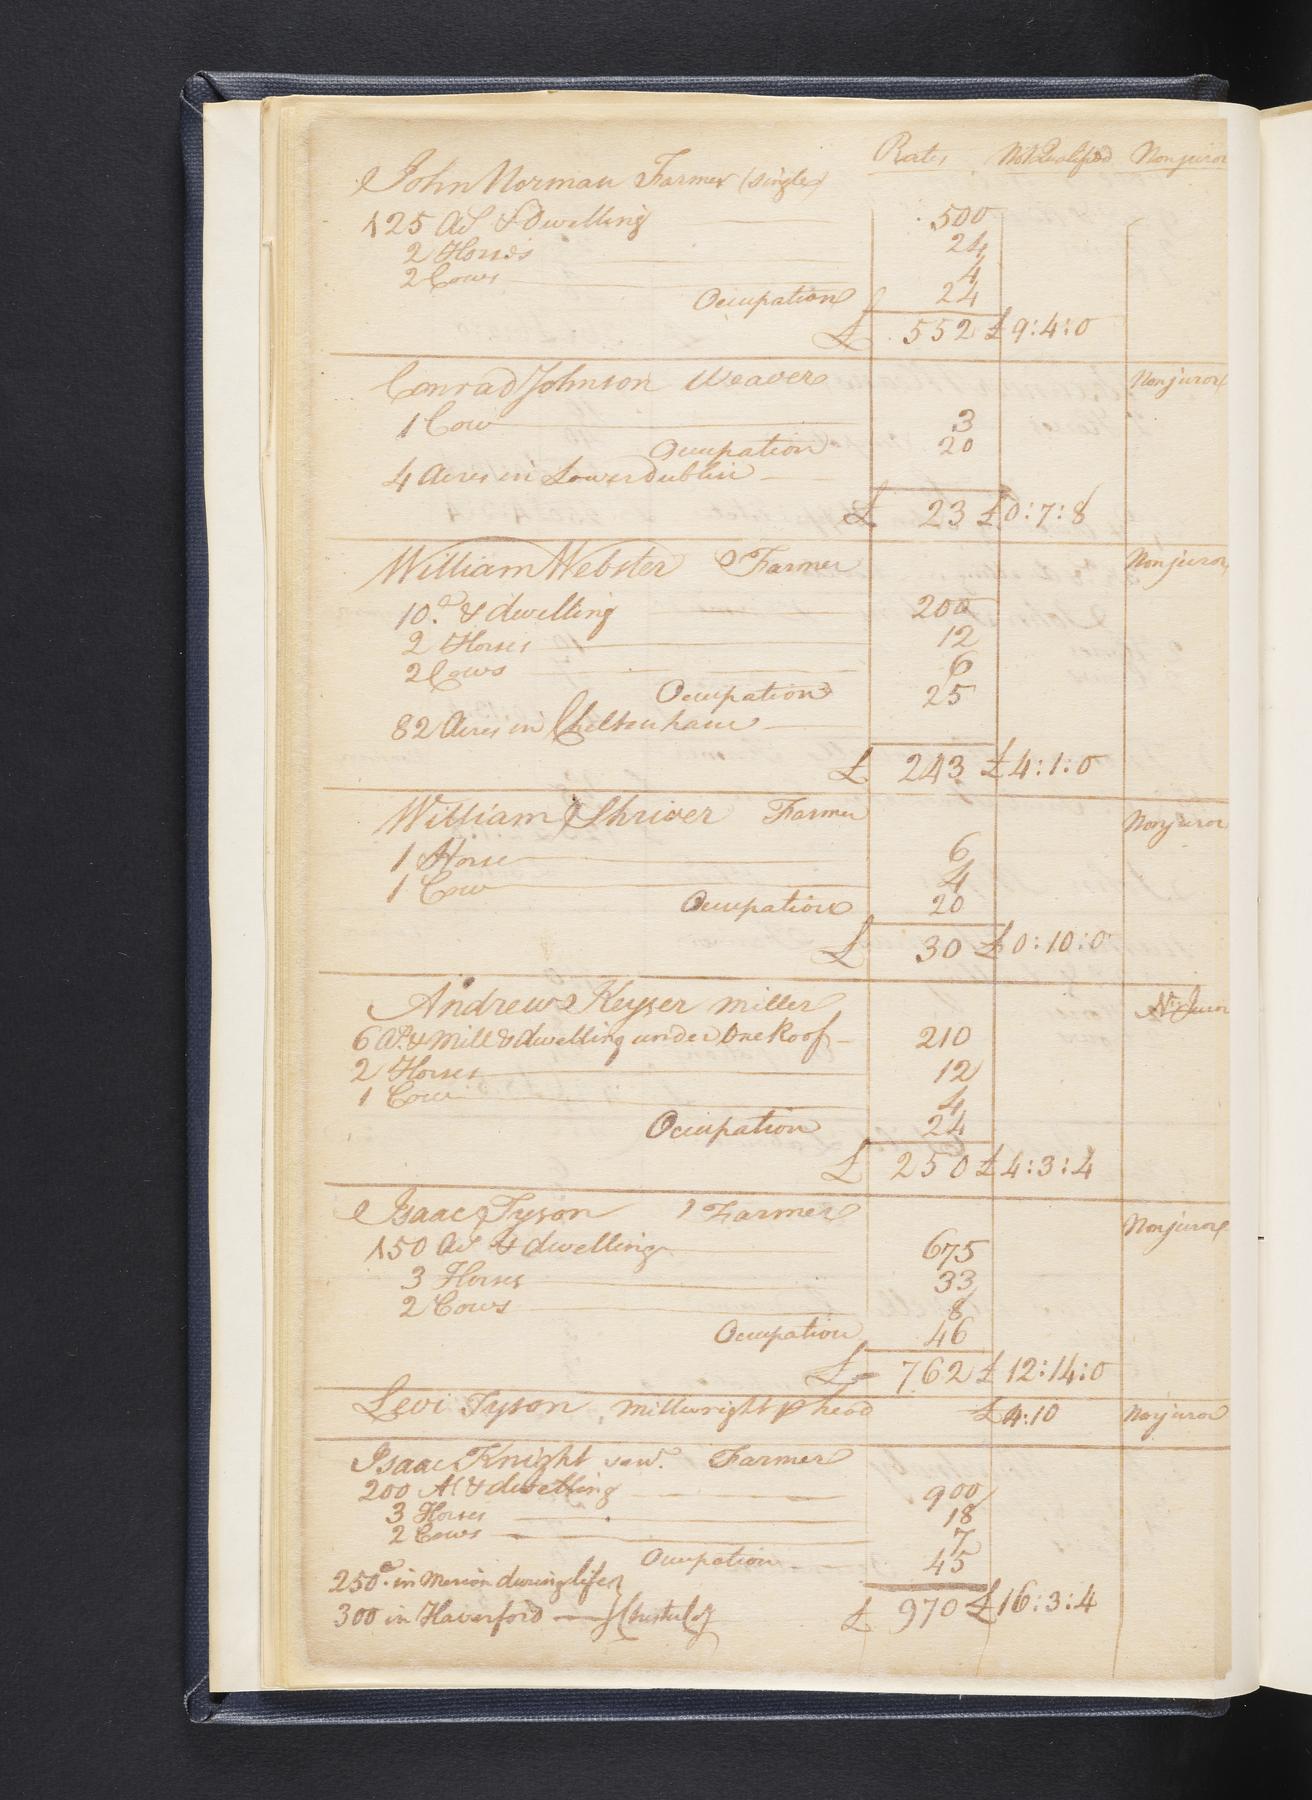 Rates Not Qualified Nonjuror
John Norman Farmer (single)
125 As & Dwelling 500
2 Horses 24
2 Cows 4
Occupation 24
£ 552 £9:4:0
Conrad Johnson Weaver Nonjuror
1 Cow 3
Occupation 20
4 Acres in Lower Dublin
£ 23 £0:7:8
William Webster Farmer Nonjuror
10 a & dwelling 200
2 Horses 12
2 Cows 6
Occupation 25
82 Acres in Cheltenham
£ 243 £4:1:0
William Shriver Farmer Nonjuror
1 Horse 6
1 Cow 4
Occupation 20
£ 30 £0:10:0
Andrew Keyser miller N. Juror
6 As & Mill & dwelling under One Roof 210
2 Horses 12
1 Cow 4
Occupation 24
£ 250 £4:3:4
Isaac Tyson Farmer Nonjuror
150 As & dwelling 675
3 Horses 33
2 Cows 8
Occupation 46
£ 762 £12:14:0
Levi Tyson millwright p head £4:10 Nonjuror
Isaac Knight senr. Farmer
200 A & dwelling 900
3 Horses 18
2 Cows 7
Occupation 45
250 a in Merion during life
300 in Haverford
£ 970 £16:3:4